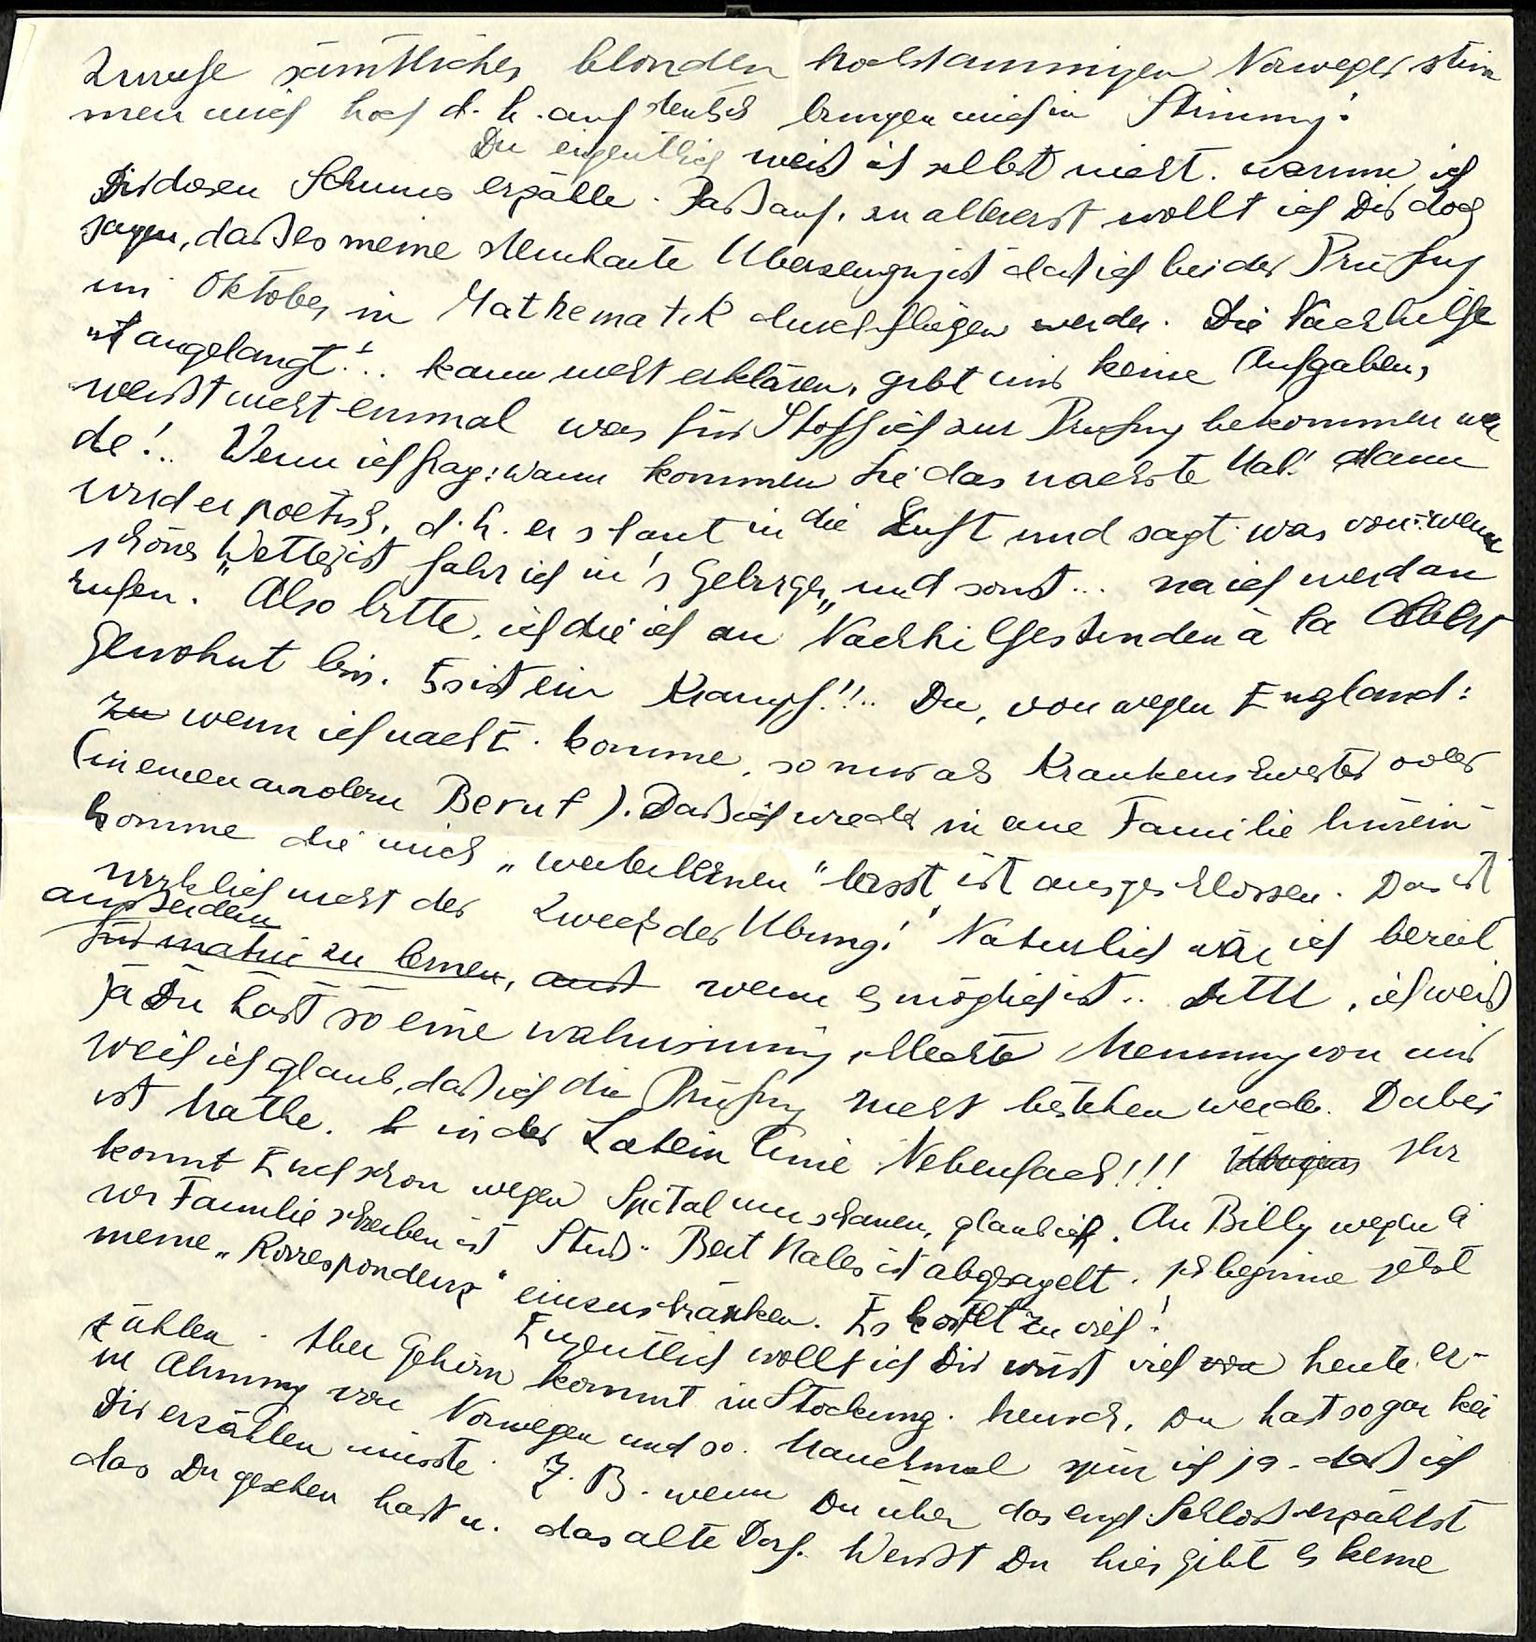 Zurufe sämtlicher blonden hochstämmigen Norweger stim
men mich hoch d. h. auf deutsch bringen mich in Stimmung!
Du eigentlich weiß ich selbst nicht. warum ich
Dir diesen Schmus erzähle. Paß auf, zu allererst wollt ich Dir doch
sagen, daß es meine Überzeugung ist daß ich bei der Prüfung
im Oktober in Mathematik durchfliegen werde. Die Nachhilfe
ist angelangt!.. kann nicht erklären, gibt mir keine Aufgaben,
weißt nicht einmal was für Stoff ich zur Prüfung bekommen wer
de!.. Wenn ich frag: wann kommen Sie das nächste Mal! dann
wird er poetisch, d. h. er schaut in die Luft und sagt was von: wenn
schönes Wetter ist fahr ich in's Gebirge„ und sonst... na ich werd an
rufen. Also bitte, ich die ich an Nachhilfestunden à la Albert
gewohnt bin. Es ist ein Krampf!!.. Du, von wegen England:
Zu wenn ich nach E. komme, so nur als Krankenschwester oder
(in einen andern Beruf). Daß ich wieder in eine Familie hinein
komme die mich „weiterlernen" lässt ist ausgeschlossen. Das ist
wirklich nicht der Zweck der Übung! Natürlich wär ich bereit
außerdem
für matric zu lernen, wenn es möglich ist.. Ditll, ich weiß
ja Du hast so eine wahnsinnig schlechte Meinung von mir
weil ich glaub, daß ich die Prüfung nicht bestehen werde. Dabei
ist Mathe. in der Latein Linie Nebenfach!!! Übrigens Ihr
könnt Euch schon wegen Spital umschauen, glaub ich. An Billy wegen
Familie schreiben ist Stuß. Beit Hales ist abgesagelt. Ich beginne jetzt
meine „Korrespondenz" einzuschränken. Es kostet zu viel!
Eigentlich wollt ich Dir viel von heute er-
zählen. Aber Gehirn kommt in Stockung. Mensch, Du hast sogar kei
ne Ahnung von Norwegen und so. Manchmal spür ich ja - daß ich
Dir erzählen müsste. Z. B. wenn Du über das engl. Schloß erzählst
das Du gesehen hast u. das alte Dorf. Weißt Du hier gibt es keine